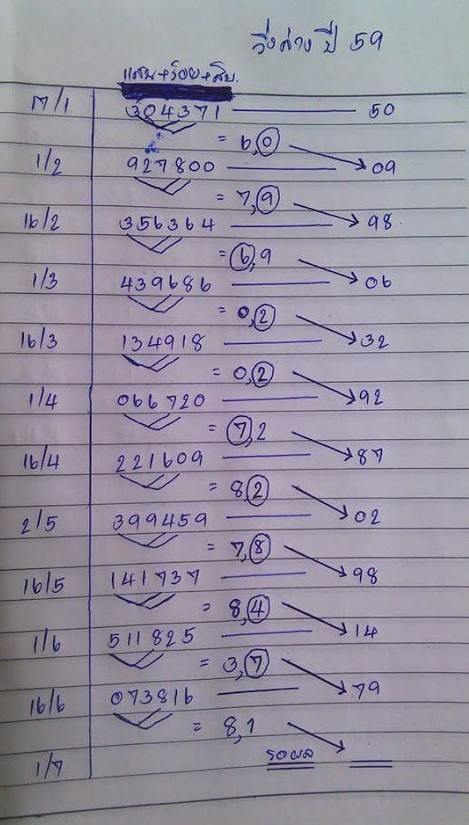 วิ่งล่าง ปี 59
แสน+ร้อย+สิบ.
17/1 304371 50
= 6,0
1/2 927800 09
= 7,9
16/2 356364 98
= 6,9
1/3 439686 06
= 0,2
16/3 134918 32
= 0,2
1/4 066720 92
= 7,2
16/4 221609 87
= 8,2
2/5 399459 02
= 7,8
16/5 141737 98
= 8,4
1/6 511825 14
= 3,7
16/6 073816 79
= 8,1
1/7 รอผล